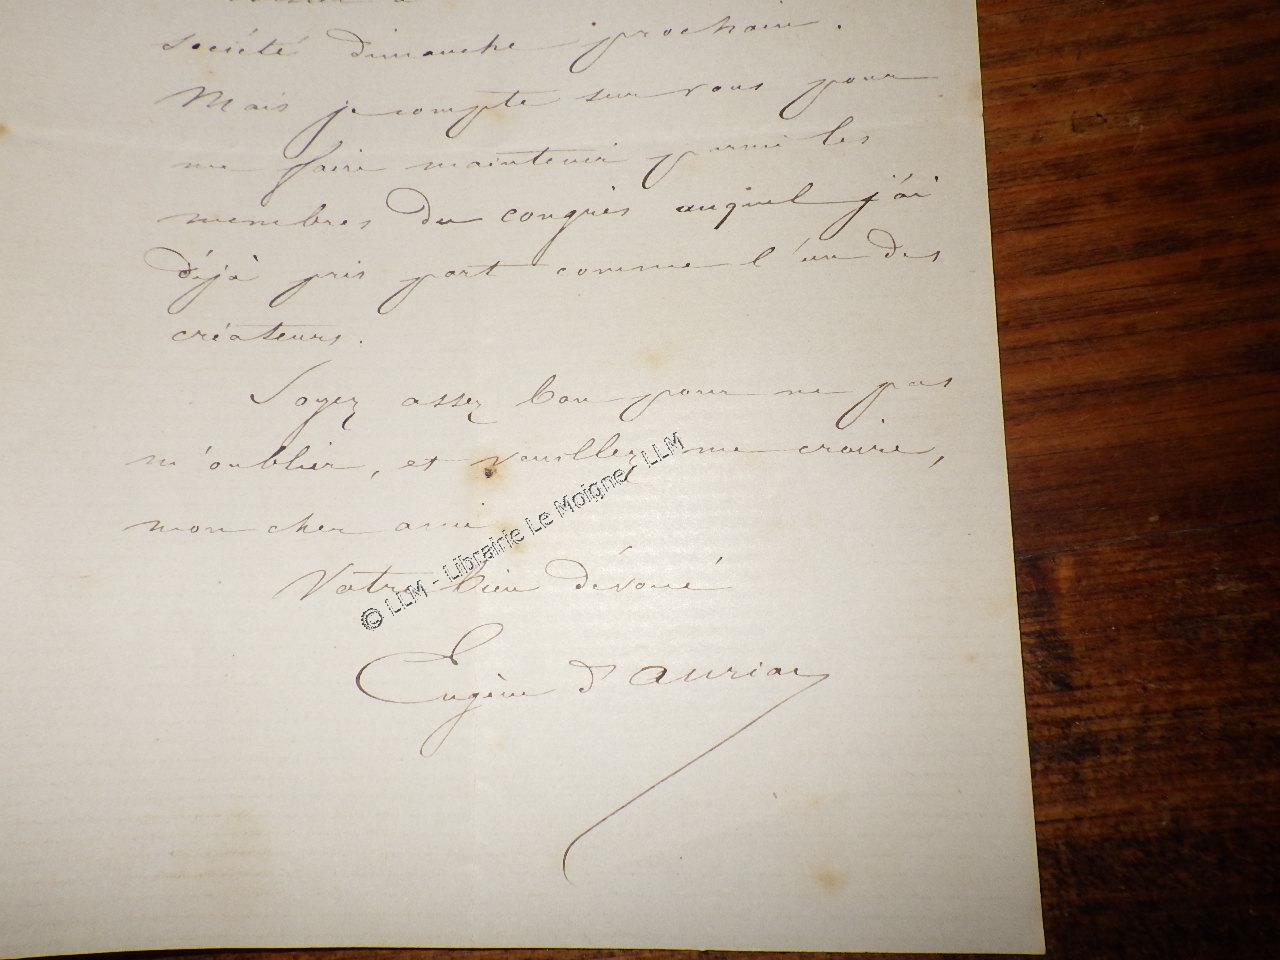 société dimanche prochain.
Mais je compte sur vous pour
me faire maintenir parmi les
membres du congrès auquel j'ai
déjà pris part comme l'un des
créateurs.
Soyez assez bon pour ne pas
m'oublier, et veuillez me croire,
mon cher ami
Votre bien dévoué
Eugène d'Auriac
© LLM - Librairie Le Moigne - LLM